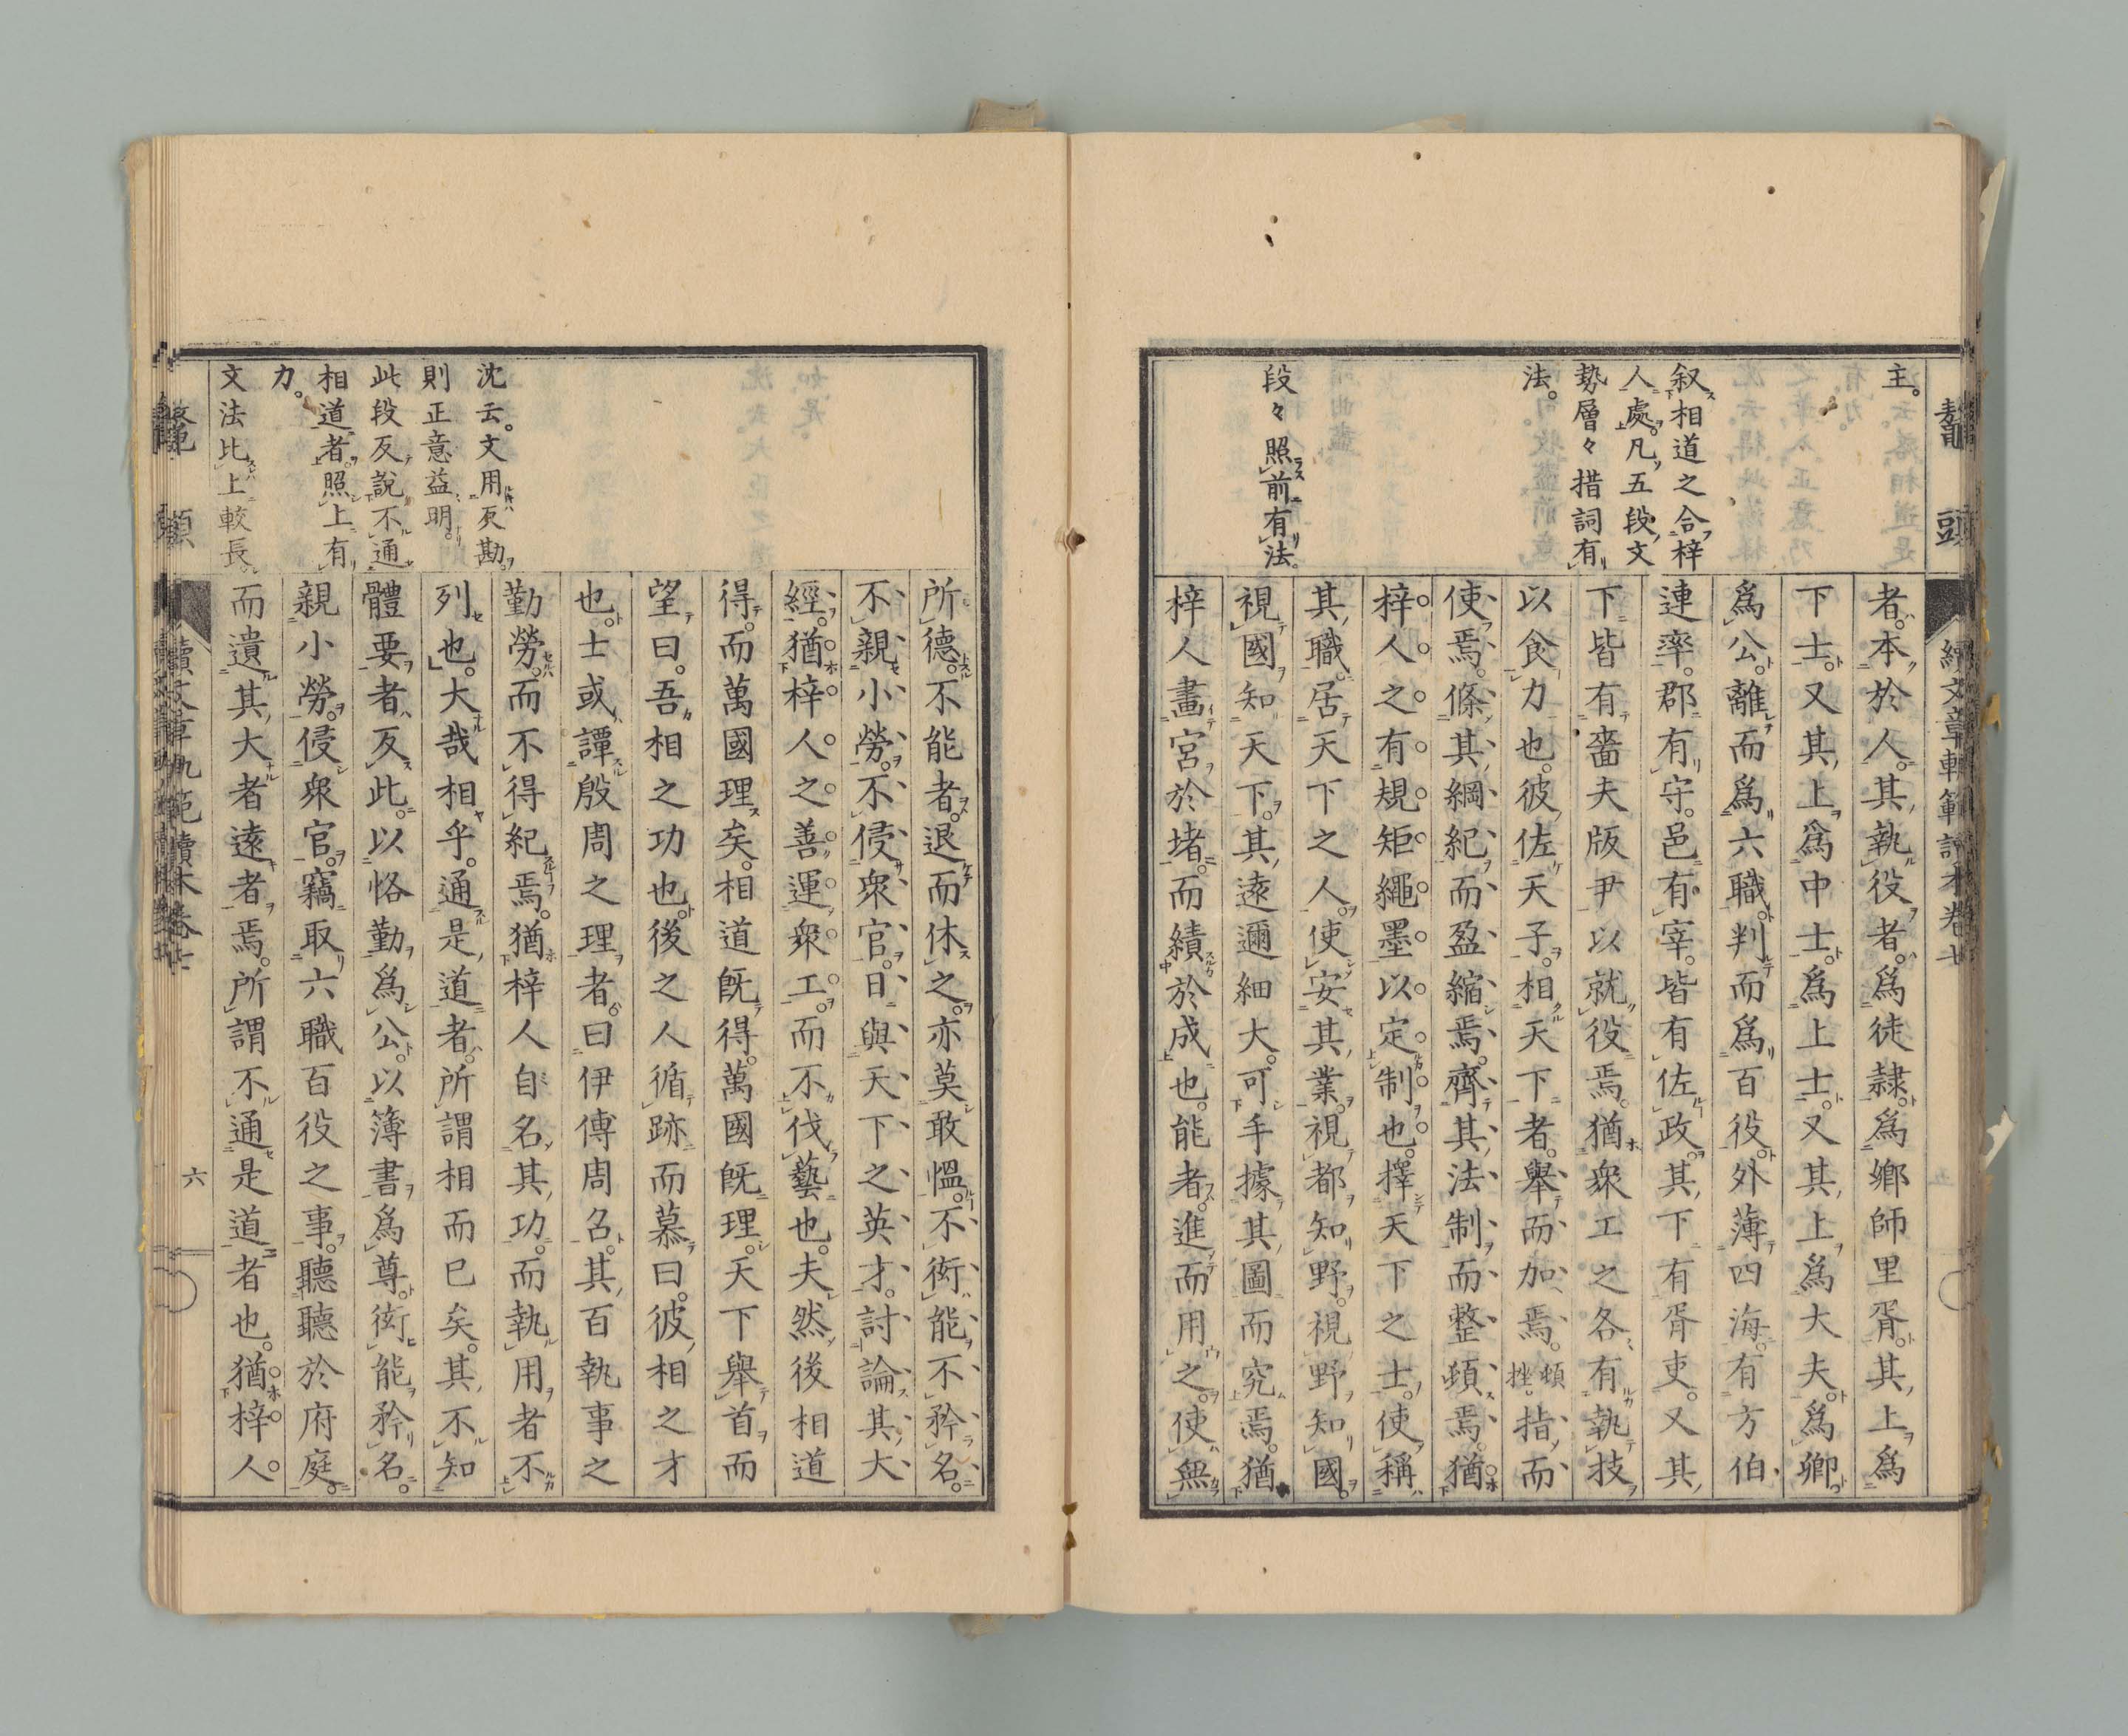 主。
叙相道之合梓
人處。凡五段文
勢層々措詞有
法。
段々照前有法。
者。本於人。其執役者。爲徒隷。爲鄉師里胥。其上爲
下士。又其上爲中士。爲上士。又其上爲大夫。爲卿。
爲公。離而爲六職。判而爲百役。外薄四海。有方伯
連率。郡有守。邑有宰。皆有佐政。其下有胥吏。又其
下皆有嗇夫版尹以就役焉。猶衆工之各有執技
以食力也。彼佐天子。相天下者。舉而加焉。指而
使焉。條其綱紀而盈縮焉。齊其法制而整頓焉。猶
梓人之有規矩繩墨以定制也。擇天下之士。使稱
其職。居天下之人。使安其業。視都知野。視野知國。
視國知天下。其遠邇細大。可手據其圖而究焉。猶
梓人畫宮於堵。而績於成也。能者進而用之。使無
沈云。文用反勘
則正意益明。
此段反說不通
相道者。照上有
力。
文法比上較長
所德。不能者。退而休之。亦莫敢慍。不衒能不矜名。
不親小勞。不侵衆官。日與天下之英才。討論其大
經。猶梓人之善運衆工。而不伐藝也。夫然後相道
得。而萬國理矣。相道既得。萬國既理。天下舉首而
望曰。吾相之功也。後之人循跡而慕曰。彼相之才
也。士或譚殷周之理者。曰伊傅周召。其百執事之
勤勞。而不得紀焉。猶梓人自名其功。而執用者不
列也。大哉相乎。通是道者。所謂相而已矣。其不知
體要者反此。以恪勤爲公。以簿書爲尊。衒能矜名。
親小勞。侵衆官。竊取六職百役之事。聽聽於府庭。
而遺其大者遠者焉。所謂不通是道者也。猶梓人
六